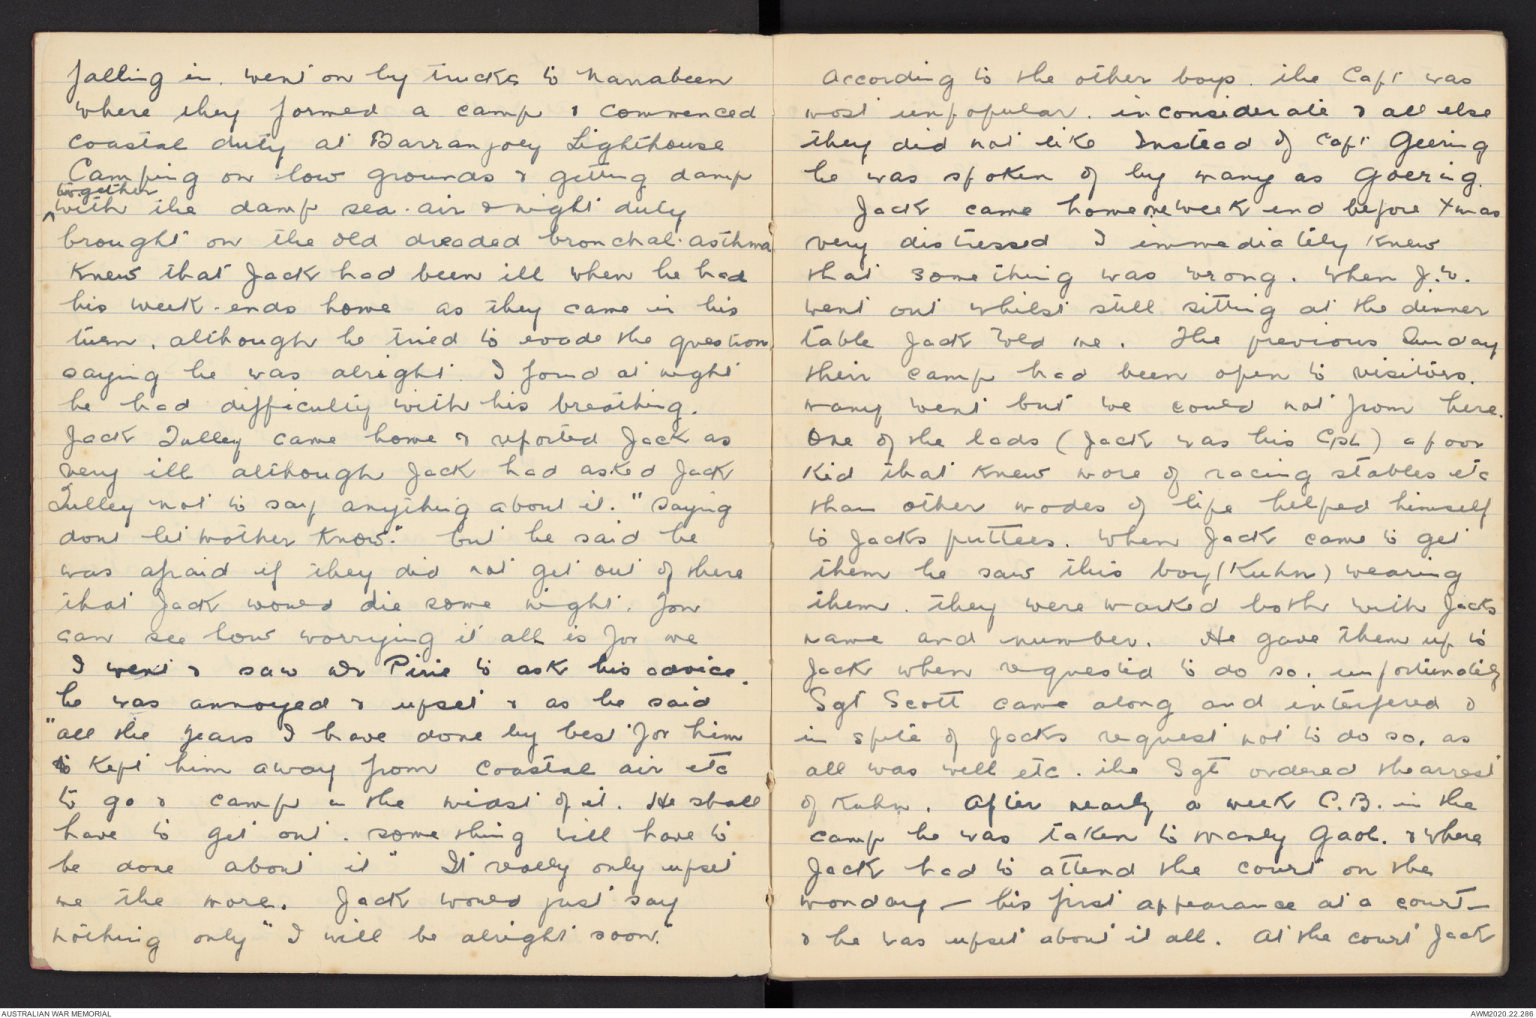 falling in. went on by trucks to Narrabeen
where they formed a camp & commenced
coastal duty at Barranjoey Lighthouse
Camping on low grounds & getting damp
together
with the damp sea-air & night duty
brought on the old dreaded bronchal-asthma
Knew that Jack had been ill when he had
his week-ends home as they came in his
turn, although he tried to evade the question
saying he was alright. I found at night
he had difficulty with his breathing.
Jack Tulley came home & reported Jack as
very ill although Jack had asked Jack
Tulley not to say anything about it. "saying
dont let mother know." but he said he
was afraid if they did not get out of there
that Jack would die some night. You
can see how worrying it all is for me
I went & saw Dr Pirie to ask his advice.
he was annoyed & upset & as he said
"all the years I have done by best for him
to kept him away from coastal air etc
to go & camp in the midst of it. He shall
have to get out. something will have to
be done about it" It really only upset
me the more. Jack would just say
nothing only "I will be alright soon."
According to the other boys. the Capt was
most unpopular. inconsiderate & all else
they did not like Instead of Capt Geering
he was spoken of by many as Goering.
Jack came home one week end before Xmas
very distressed I immediately knew
that something was wrong. When J.W.
went out whilst still sitting at the dinner
table Jack told me. The previous Sunday
their camp had been open to visitors.
many went but we could not from here.
One of the lads (Jack was his Cpl) a poor
kid that knew more of racing stables etc
than other modes of life helped himself
to Jacks puttees. When Jack came to get
them he saw this boy (Kuhn) wearing
them. They were marked both with Jacks
name and number. He gave them up to
Jack when requested to do so. unfortunately
Sgt Scott came along and interfered &
in spite of Jacks request not to do so. as
all was well etc. the Sgt ordered the arrest
of Kuhn. After nearly a week C.B. in the
camp he was taken to Manly Gaol. & where
Jack had to attend the court on the
Monday - his first appearance at a court -
& he was upset about it all. At the court Jack
AUSTRALIAN WAR MEMORIAL
AWM2020.22.286